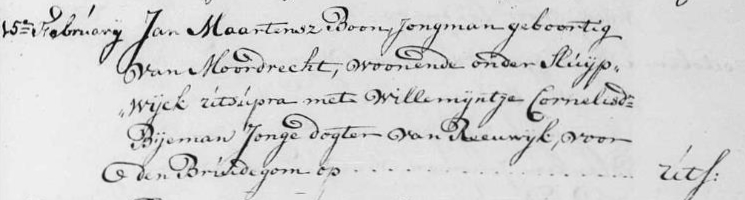 15en February Jan Maartensz Boon, Jongman geboortig
van Moordrecht, woonende onder Sluÿp„
„wijck útsúpra mete Willemÿntje Cornelisdr
Bijeman Jonge dogter van Reeuwÿk, voor
den Brúidegom op . . . . . . . . . . . . . . . . úts: